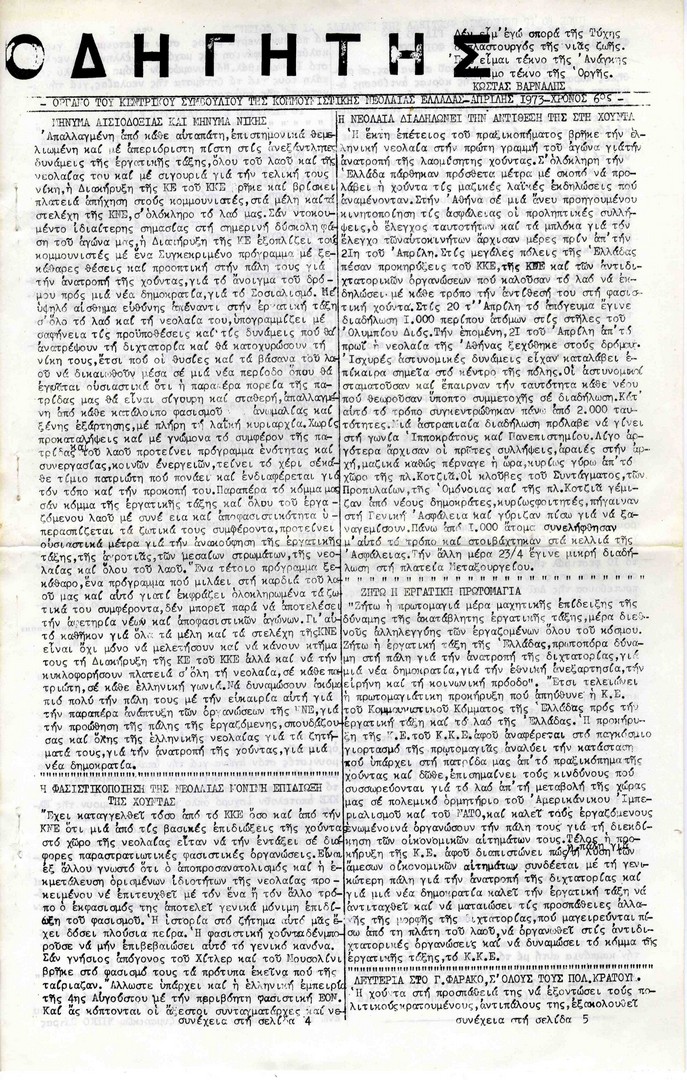 ΟΔΗΓΗΤΗΣ
Δέν εἶμ'ἐγώ σπορά τῆς Τύχης
ὁ πλαστουργός τῆς νιᾶς ζωῆς.
Γώ εἶμαι τέκνο τῆς Ἀνάγκης
τέκνο τῆς Ὀργῆς.
ΚΩΣΤΑΣ ΒΑΡΝΑΛΗΣ
- ΟΡΓΑΝΟ ΤΟΥ ΚΕΝΤΡΙΚΟΥ ΣΥΜΒΟΥΛΙΟΥ ΤΗΣ ΚΟΜΜΟΥΝΙΣΤΙΚΗΣ ΝΕΟΛΑΙΑΣ ΕΛΛΑΔΑΣ-ΑΠΡΙΛΗΣ 1973-ΧΡΟΝΟΣ 6ος -
ΜΗΝΥΜΑ ΑΙΣΙΟΔΟΞΙΑΣ ΚΑΙ ΜΗΝΥΜΑ ΝΙΚΗΣ
Ἀπαλλαγμένη ἀπό κάθε αὐταπάτη,ἐπιστημονικά θεμε-
λιωμένη καί μέ ἀπεριόριστη πίστη στίς ἀνεξάντλητες
δυνάμεις τῆς ἐργατικῆς τάξης,ὅλου τοῦ λαοῦ καί τῆς
νεολαίας του καί μέ σιγουριά γιά τήν τελική τους
νίκη,ἡ Διακήρυξη τῆς ΚΕ τοῦ ΚΚΕ βρῆκε καί βρίσκει
πλατειά ἀπήχηση στούς κομμουνιστές,στά μέλη καί τά
στελέχη τῆς ΚΝΕ,σ'ὁλόκληρο τό λαό μας.Σάν ντοκου-
μέντο ἰδιαίτερης σημασίας στή σημερινή δύσκολη φά-
ση τοῦ ἀγώνα μας,ἡ Διακήρυξη τῆς ΚΕ ἐξοπλίζει τούς
κομμουνιστές μέ ἕνα Συγκεκριμένο πρόγραμμα μέ ξε-
κάθαρες θέσεις καί προοπτική στήν πάλη τους γιά
τήν ἀνατροπή τῆς χούντας,γιά τό ἄνοιγμα τοῦ δρό-
μου πρός μιά νέα δημοκρατία,γιά τό Σοσιαλισμό. Μέ
ὑψηλό αἴσθημα εὐθύνης ἀπέναντι στήν ἐργατική τάξη
σ'ὅλο τό λαό καί τή νεολαία του,ὑπογραμμίζει μέ
σαφήνεια τίς προϋποθέσεις καί τίς δυνάμεις πού θά
ἀνατρέψουν τή διχτατορία καί θά κατοχυρώσουν τή
νίκη τους,ἔτσι πού οἱ θυσίες καί τά βάσανα τοῦ λα-
οῦ νά δικαιωθοῦν μέσα σέ μιά νέα περίοδο ὅπου θά
ἐγγυᾶται οὐσιαστικά ὅτι ἡ παραπέρα πορεία τῆς πα-
τρίδας μας θά εἶναι σίγουρη καί σταθερή,ἀπαλλαγμέ-
νη ἀπό κάθε κατάλοιπο φασισμοῦ ἀνωμαλίας καί
ξένης ἐξάρτησης,μέ πλήρη τή λαϊκή κυριαρχία.Χωρίς
προκαταλήψεις καί μέ γνώμονα τό συμφέρον τῆς πα-
τρίδας καί τοῦ λαοῦ προτείνει πρόγραμμα ἑνότητας καί
συνεργασίας,κοινῶν ἐνεργειῶν,τείνει τό χέρι σέκά-
θε τίμιο πατριώτη πού πονάει καί ἐνδιαφέρεται γιά
τόν τόπο καί τήν προκοπή του.Παραπέρα τό κόμμα μας
σάν κόμμα τῆς ἐργατικῆς τάξης καί ὅλου τοῦ ἐργα-
ζόμενου λαοῦ μέ συνέ εια καί ἀποφασιστικότητα ὑ-
περασπίζεται τά ζωτικά τους συμφέροντα,προτείνει
οὐσιαστικά μέτρα γιά τήν ἀνακούφηση τῆς ἐργατικῆς
τάξης,τῆς ἀγροτιᾶς,τῶν μεσαίων στρωμάτων,τῆς νεο-
λαίας καί ὅλου τοῦ λαοῦ.Ἕνα τέτοιο πρόγραμμα ξε-
κάθαρο,ἕνα πρόγραμμα πού μιλάει στή καρδιά τοῦ λα-
οῦ μας καί αὐτό γιατί ἐκφράζει ὁλοκληρωμένα τά ζω-
τικά του συμφέροντα,δέν μπορεῖ παρά νά ἀποτελέσει
τήν ἀφετηρία νέων καί ἀποφασιστικῶν ἀγώνων.Γι'αὐ-
τό καθῆκον γιά ὅλα τά μέλη καί τά στελέχη τῆς ΚΝΕ
εἶναι ὄχι μόνο νά μελετήσουν καί νά κάνουν κτῆμα
τους τή Διακήρυξη τῆς ΚΕ τοῦ ΚΚΕ ἀλλά καί νά τήν
κυκλοφορήσουν πλατειά σ'ὅλη τή νεολαία,σέ κάθε πα-
τριώτη,σέ κάθε ἑλληνική γωνιά.Νά δυναμώσουν ἀκόμα
πιό πολύ τήν πάλη τους μέ τήν εὐκαιρία αὐτή γιά
τήν παραπέρα ἀνάπτυξη τῶν ὀργανώσεων τῆς ΚΝΕ,γιά
τήν προώθηση τῆς πάλης τῆς ἐργαζόμενης,σπουδάζου-
σας καί ὅλης τῆς ἑλληνικῆς νεολαίας γιά τά ζητή-
ματά τους,γιά τήν ἀνατροπή τῆς χούντας,γιά μιά
νέα δημοκρατία.
Η ΦΑΣΙΣΤΙΚΟΠΟΙΗΣΗ ΤΗΣ ΝΕΟΛΑΙΑΣ ΜΟΝΙΜΗ ΕΠΙΔΙΩΞΗ
ΤΗΣ ΧΟΥΝΤΑΣ
Ἔχει καταγγελθεῖ τόσο ἀπό τό ΚΚΕ ὅσο καί ἀπό τήν
ΚΝΕ ὅτι μιά ἀπό τίς βασικές ἐπιδιώξεις τῆς χούντας
στό χῶρο τῆς νεολαίας εἶταν νά τήν ἐντάξει σέ διά-
φορες παραστρατιωτικές φασιστικές ὀργανώσεις.Εἶναι
ἐξ ἄλλου γνωστό ὅτι ὁ ἀποπροσανατολισμός καί ἡ ἐ-
κμετάλευση ὁρισμένων ἰδιοτήτων τῆς νεολαίας προ-
κειμένου νά ἐπιτευχθεῖ μέ τόν ἕνα ἤ τόν ἄλλο τρό-
πο ὁ ἐκφασισμός της ἀποτελεῖ γενικά μόνιμη ἐπιδί-
ωξη τοῦ φασισμοῦ.Ἡ ἱστορία στό ζήτημα αὐτό μᾶς ἔ-
χει δόσει πλούσια πείρα. Ἡ φασιστική χούνταδένμπο-
ροῦσε νά μήν ἐπιβεβαιώσει αὐτό τό γενικό κανόνα.
Σάν γνήσιος ἀπόγονος τοῦ Χίτλερ καί τοῦ Μουσολίνι
βρῆκε στό φασισμό τους τά πρότυπα ἐκεῖνα πού τῆς
ταίριαζαν.Ἄλλωστε ὑπάρχει καί ἡ ἑλληνική ἐμπειρία
τῆς 4ης Αὐγούστου μέ τήν περιβόητη φασιστική ΕΟΝ.
Καί ἄς κόπτονται οἱ ἄξεστοι συνταγματάρχες καί νε-
συνέχεια στή σελίδα 4
Η ΝΕΟΛΑΙΑ ΔΙΑΔΗΛΩΝΕΙ ΤΗΝ ΑΝΤΙΘΕΣΗ ΤΗΣ ΣΤΗ ΧΟΥΝΤΑ
Ἡ ἕκτη ἐπέτειος τοῦ πραξικοπήματος βρῆκε τήν ἑλ-
ληνική νεολαία στήν πρώτη γραμμή τοῦ ἀγώνα γιάτήν
ἀνατροπή τῆς λαομίσητης χούντας.Σ'ὁλόκληρη τήν
Ἑλλάδα πάρθηκαν πρόσθετα μέτρα μέ σκοπό νά προ-
λάβει ἡ χούντα τίς μαζικές λαϊκές ἐκδηλώσεις πού
ἀναμένονταν.Στήν Ἀθήνα σέ μιά ἄνευ προηγουμένου
κινητοποίηση τῆς ἀσφάλειας οἱ προληπτικές συλλή-
ψεις,ὁ ἔλεγχος ταυτοτήτων καί τά μπλόκα γιά τόν
ἔλεγχο τῶναυτοκινήτων ἄρχισαν μέρες πρίν ἀπ'τήν
21η τοῦ Ἀπρίλη.Στίς μεγάλες πόλεις τῆς Ἑλλάδας
πέσαν προκηρύξεις τοῦ ΚΚΕ,τῆς ΚΝΕ καί τῶν ἀντιδι-
χτατορικῶν ὀργανώσεων πού καλοῦσαν τό λαό νά ἐκ-
δηλώσει μέ κάθε τρόπο τήν ἀντίθεσή του στή φασισ-
τική χούντα.Στίς 20 τ'Ἀπρίλη τό ἀπόγευμα ἔγινε
διαδήλωση 1.000 περίπου ἀτόμων στίς στῆλες τοῦ
Ὀλυμπίου Διός.Τήν ἑπομένη,21 τοῦ Ἀπρίλη ἀπ'τό
πρωΐ ἡ νεολαία τῆς Ἀθήνας ξεχύθηκε στούς δρόμους.
Ἰσχυρές ἀστυνομικές δυνάμεις εἶχαν καταλάβει ἐ-
πίκαιρα σημεῖα στό κέντρο τῆς πόλης.Οἱ ἀστυνομικοί
σταματοῦσαν καί ἔπαιρναν τήν ταυτότητα κάθε νέου
πού θεωροῦσαν ὕποπτο συμμετοχῆς σέ διαδήλωση.Κάτ'
αὐτό τό τρόπο συγκεντρώθηκαν πάνω ἀπό 2.000 ταυ-
τότητες.Μιά ἀστραπιαία διαδήλωση πρόλαβε νά γίνει
στή γωνία Ἱπποκράτους καί Πανεπιστημίου.Λίγο ἀρ-
γότερα ἄρχισαν οἱ πρῶτες συλλήψεις,ἀραιές στήν ἀρ-
χή,μαζικά καθώς πέρναγε ἡ ὥρα,κυρίως γύρω ἀπ'τό
χῶρο τῆς πλ.Κοτζιᾶ.Οἱ κλοῦβες τοῦ Συντάγματος,τῶν
Προπυλαίων,τῆς Ὁμόνοιας καί τῆς πλ.Κοτζιᾶ γέμι-
ζαν ἀπό νέους δημοκράτες,κυρίωςφοιτητές,πήγαιναν
στή Γενική Ἀσφάλεια καί γύριζαν πίσω γιά νά ξα-
ναγεμίσουν.Πάνω ἀπό 1.000 ἄτομα συνελήφθησαν
μ'αὐτό τό τρόπο καί στοιβάχτηκαν στά κελλιά τῆς
Ἀσφάλειας.Τήν ἄλλη μέρα 23/4 ἔγινε μικρή διαδή-
λωση στή πλατεία Μεταξουργείου.
ΖΗΤΩ Η ΕΡΓΑΤΙΚΗ ΠΡΩΤΟΜΑΓΙΑ
"Ζήτω ἡ πρωτομαγιά μέρα μαχητικῆς ἐπίδειξης τῆς
δύναμης τῆς ἀκατάβλητης ἐργατικῆς τάξης,μέρα διεθ-
νοῦς ἀλληλεγγύης τῶν ἐργαζομένων ὅλου τοῦ κόσμου.
Ζήτω ἡ ἐργατική τάξη τῆς Ἑλλάδας,πρωτοπόρα δύνα-
μη στή πάλη γιά τήν ἀνατροπή τῆς διχτατορίας,γιά
μιά νέα δημοκρατία,γιά τήν ἐθνική ἀνεξαρτησία,τήν
εἰρήνη καί τή κοινωνική πρόοδο". Ἔτσι τελειώνει
ἡ πρωτομαγιάτικη προκήρυξη πού ἀπηύθυνε ἡ Κ.Ε.
τοῦ Κομμουνιστικοῦ Κόμματος τῆς Ἑλλάδας πρός τήν
ἐργατική τάξη καί τό λαό τῆς Ἑλλάδας. Ἡ προκήρυ-
ξη τῆς Κ.Ε.τοῦ Κ.Κ.Ε.ἀφοῦ ἀναφέρεται στό παγκόσμιο
γιορτασμό τῆς πρωτομαγιᾶς ἀναλύει τήν κατάσταση
πού ὑπάρχει στή πατρίδα μας ἀπ'τό πραξικόπημα τῆς
χούντας καί δῶθε,ἐπισημαίνει τούς κινδύνους πού
συσσωρεύονται γιά τό λαό ἀπ'τή μεταβολή τῆς χώρας
μας σέ πολεμικό ὁρμητήριο τοῦ Ἀμερικάνικου Ἰμπε-
ριαλισμοῦ καί τοῦ ΝΑΤΟ,καί καλεῖ τούς ἐργαζόμενους
ἑνωμένοινά ὀργανώσουν τήν πάλη τους γιά τή διεκδί-
κηση τῶν οἰκονομικῶν αἰτημάτων τους.Τέλος ἡ προ-
κήρυξη τῆς Κ.Ε. ἀφοῦ διαπιστώνει πώς ἡ πάλη γιά τή λύση τῶν
ἄμεσων οἰκονομικῶν αἰτημάτων συνδέεται μέ τή γενι-
κώτερη πάλη γιά τήν ἀνατροπή τῆς διχτατορίας καί
γιά μιά νέα δημοκρατία καλεῖ τήν ἐργατική τάξη νά
ἀντιταχθεῖ καί νά ματαιώσει τίς προσπάθειες ἀλλα-
γῆς τῆς μορφῆς τῆς διχτατορίας,πού μαγειρεύονται πί-
σω ἀπό τή πλάτη τοῦ λαοῦ,νά ὀργανωθεῖ στίς ἀντιδι-
χτατορικές ὀργανώσεις καί νά δυναμώσει τό κόμμα τῆς
ἐργατικῆς τάξης,τό Κ.Κ.Ε.
ΛΕΥΤΕΡΙΑ ΣΤΟ Γ.ΦΑΡΑΚΟ,Σ'ΟΛΟΥΣ ΤΟΥΣ ΠΟΛ.ΚΡΑΤΟΥΜ.
Ἡ χούντα στή προσπάθειά της νά ἐξοντώσει τούς πο-
λιτικούςκρατουμένους,ἀντιπάλους της,ἐξακολουθεῖ
συνέχεια στή σελίδα 5